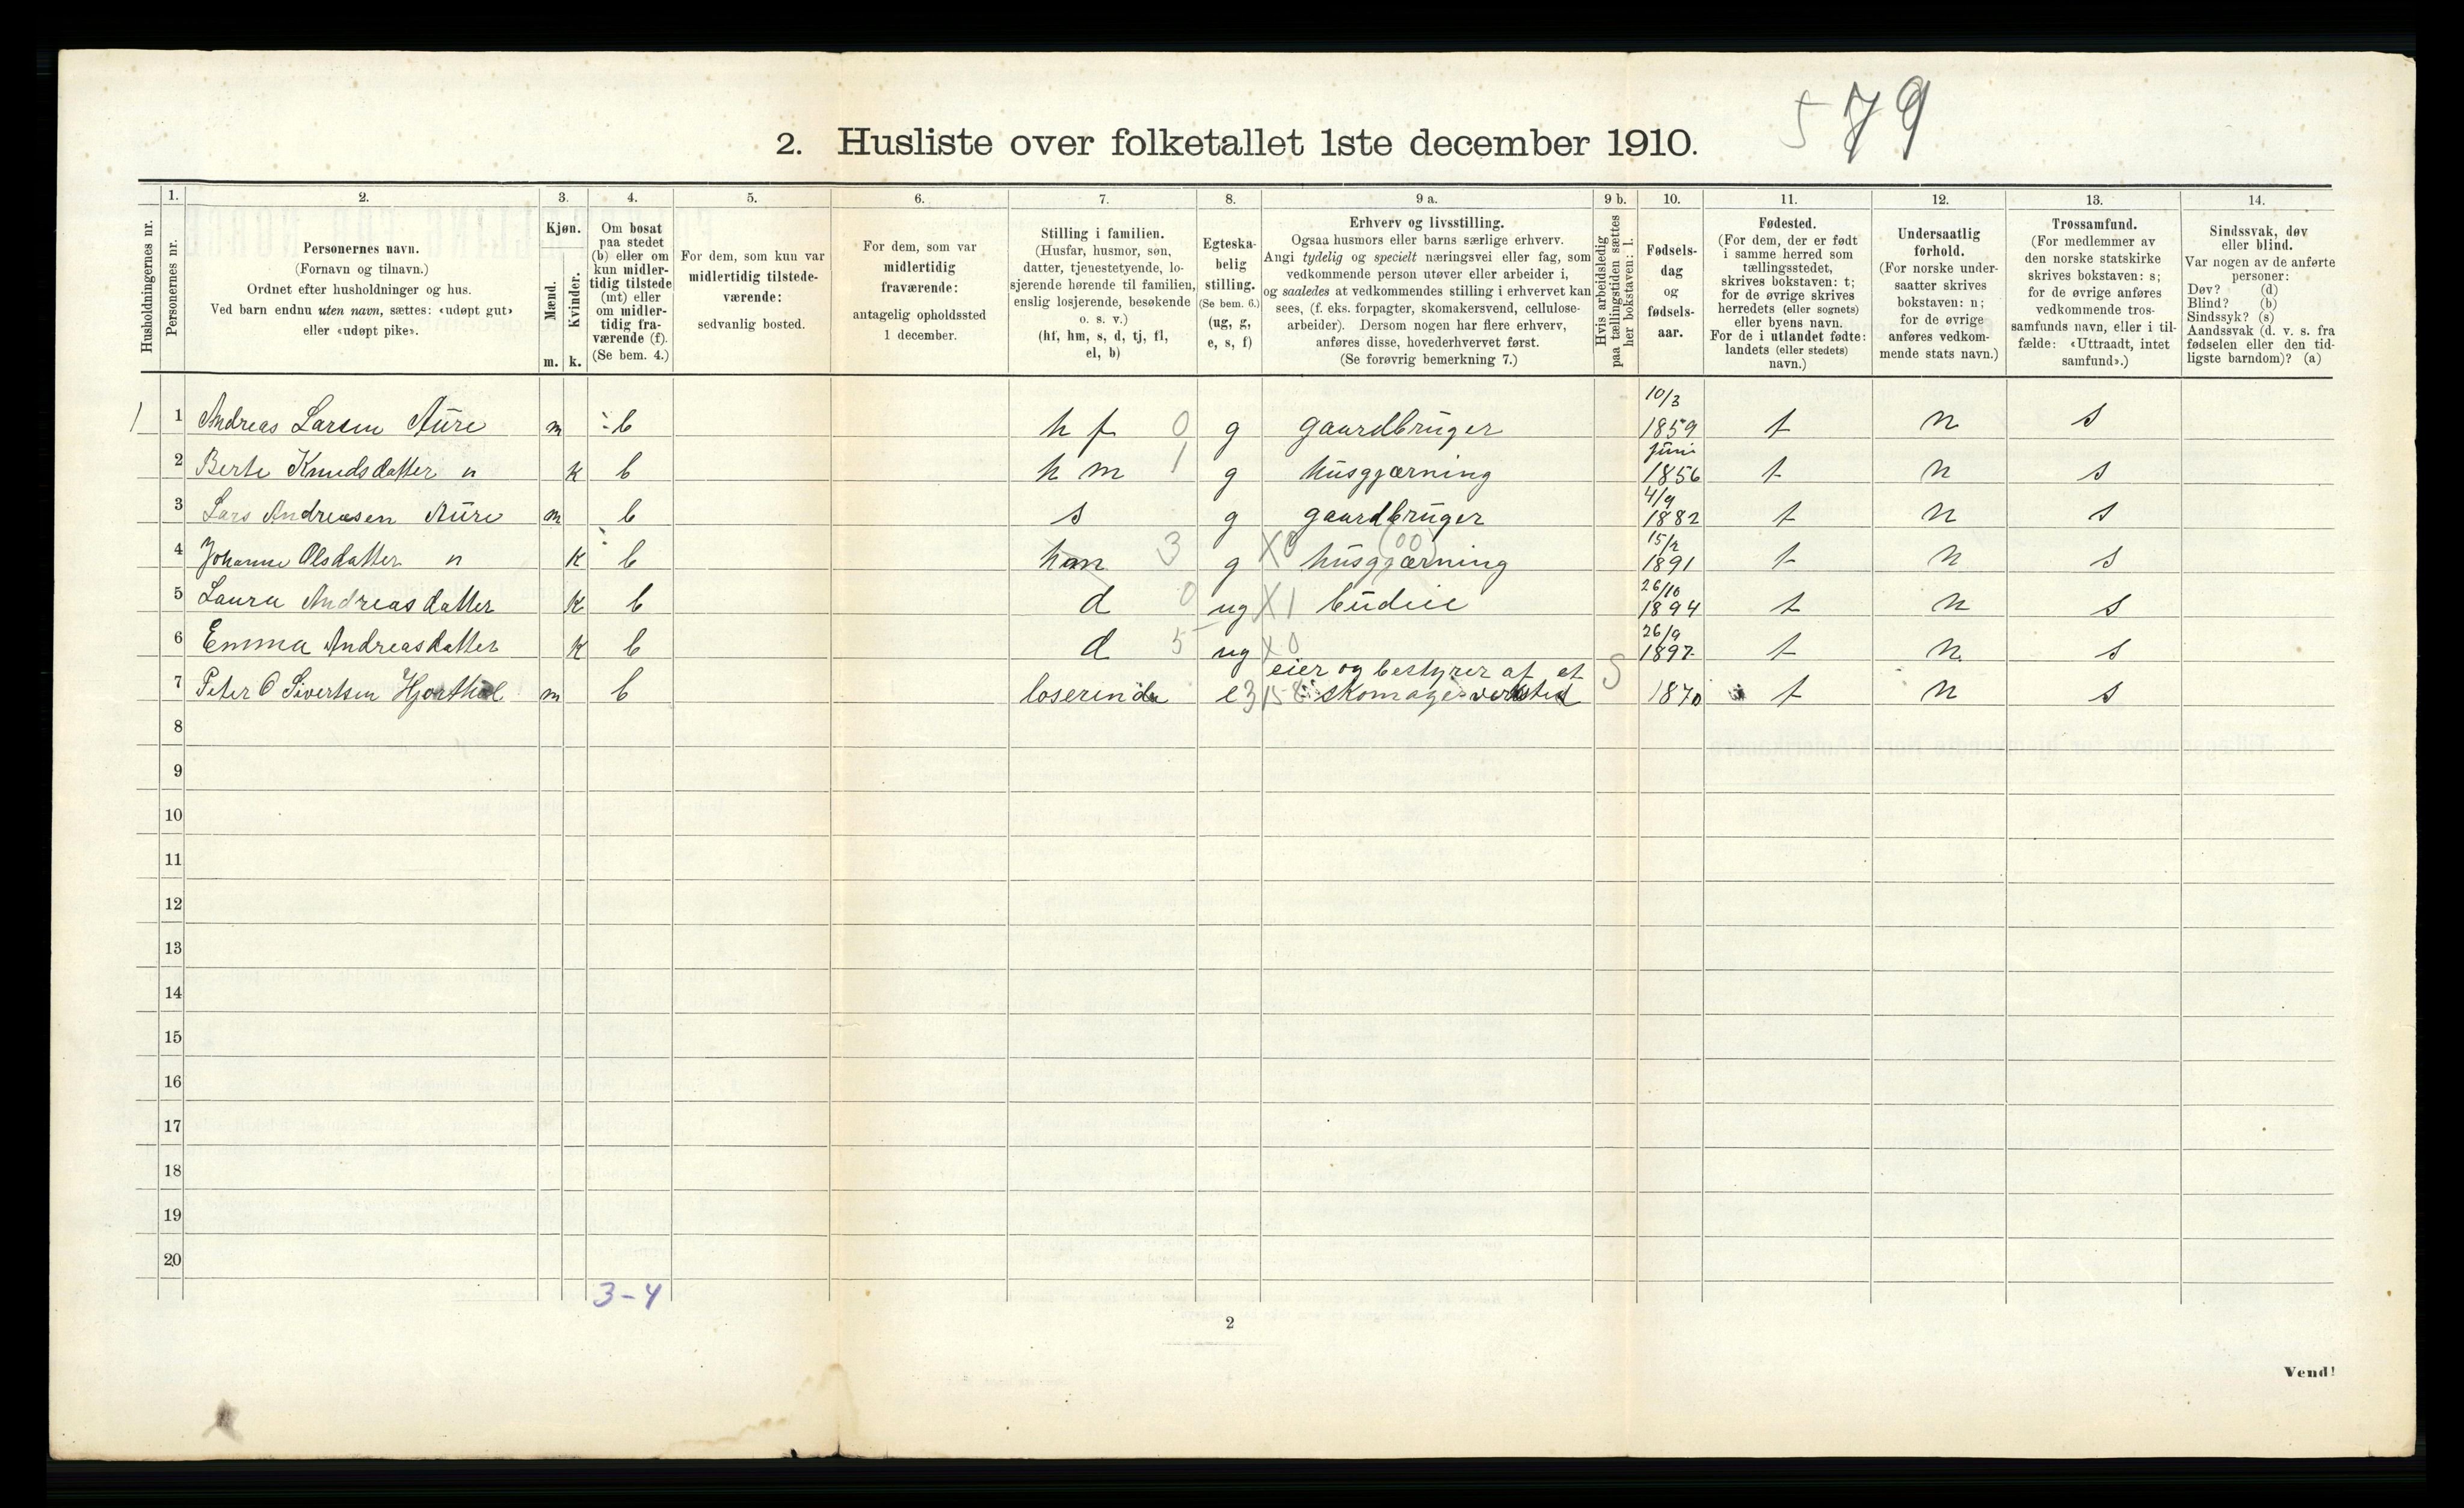 579
2. Husliste over folketallet 1ste december 1910.
Husholdningernes nr.
1.
Personernes nr.
2.
Personernes navn.
(Fornavn og tilnavn.)
Ordnet efter husholdninger og hus.
Ved barn endnu uten navn, sættes: «udøpt gut»
eller «udøpt pike».
3.
Kjøn.
Mænd.
Kvinder.
m. k.
4.
Om bosat
paa stedet
(b) eller om
kun midler-
tidig tilstede
(mt) eller
om midler-
tidig fra-
værende (f).
(Se bem. 4.)
5.
For dem, som kun var
midlertidig tilstede-
værende:
sedvanlig bosted.
6.
For dem, som var
midlertidig
fraværende:
antagelig opholdssted
1 december.
7.
Stilling i familien.
(Husfar, husmor, søn,
datter, tjenestetyende, lo-
sjerende hørende til familien,
enslig losjerende, besøkende
o. s. v.)
(hf, hm, s, d, tj, fl,
el, b)
8.
Egteska-
belig
stilling.
(Se bem. 6.)
(ug, g,
e, s, f)
9 a.
Erhverv og livsstilling.
Ogsaa husmors eller barns særlige erhverv.
Angi tydelig og specielt næringsvei eller fag, som
vedkommende person utøver eller arbeider i,
og saaledes at vedkommendes stilling i erhvervet kan
sees, (f. eks. forpagter, skomakersvend, cellulose-
arbeider). Dersom nogen har flere erhverv,
anføres disse, hovederhvervet først.
(Se forøvrig bemerkning 7.)
9 b.
Hvis arbeidsledig
paa tællingstiden sættes
her bokstaven: l.
10.
Fødsels-
dag
og
fødsels-
aar.
11.
Fødested.
(For dem, der er født
i samme herred som
tællingsstedet,
skrives bokstaven: t;
for de øvrige skrives
herredets (eller sognets)
eller byens navn.
For de i utlandet fødte:
landets (eller stedets)
navn.)
12.
Undersaatlig
forhold.
(For norske under-
saatter skrives
bokstaven: n;
for de øvrige
anføres vedkom-
mende stats navn.)
13.
Trossamfund.
(For medlemmer av
den norske statskirke
skrives bokstaven: s;
for de øvrige anføres
vedkommende tros-
samfunds navn, eller i til-
fælde: «Uttraadt, intet
samfund».)
14.
Sindssvak, døv
eller blind.
Var nogen av de anførte
personer:
Døv? (d)
Blind? (b)
Sindssyk? (s)
Aandssvak (d. v. s. fra
fødselen eller den tid-
ligste barndom)? (a)
1 1 Andreas Larsen Aure m b hf 0 g gaardbruger 10/3 1859 t n s
2 Berte Knudsdatter " k b hm 1 g husgjærning Juni 1856 t n s
3 Lars Andreasen Aure m b s g gaardbruger 4/9 1882 t n s
4 Johanne Olsdatter " k b hm 3 g X0 husgjærning (00) 15/2 1891 t n s
5 Laura Andreasdatter k b d 0 ug X1 budeie 26/10 1894 t n s
6 Emma Andreasdatter k b d 5 ug X0 26/9 1897 t n s
7 Peter O Sivertsen Hjorthol m b loserende e eier og bestyrer af et skomagerverksted S 1870 t n s
8
9
10
11
12
13
14
15
16
17
18
19
20
3-4
2
Vend!